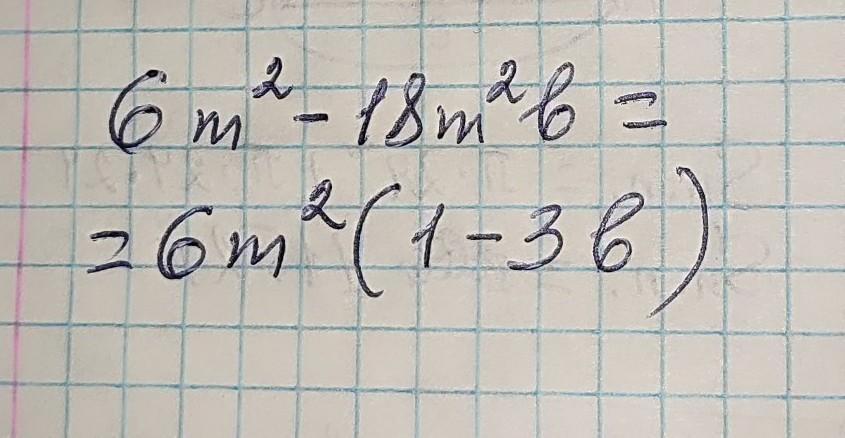 6m² - 18m²b =
= 6m²(1 - 3b)